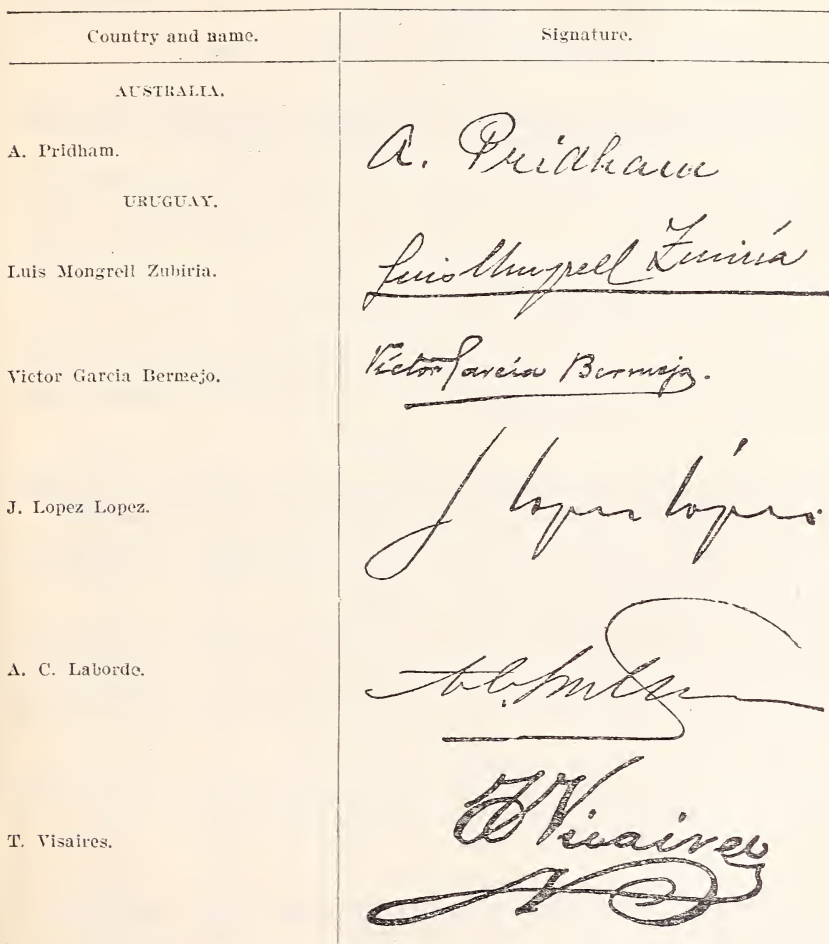 Country and name. Signature.
AUSTRALIA.
A. Pridham. A. Pridham
URUGUAY.
Luis Mongrell Zubiria. Luis Mongrell Zubiría
Victor Garcia Bermejo. Victor García Bermejo.
J. Lopez Lopez. J Lopez López
A. C. Laborde. A. C.
T. Visaires. T Visaires